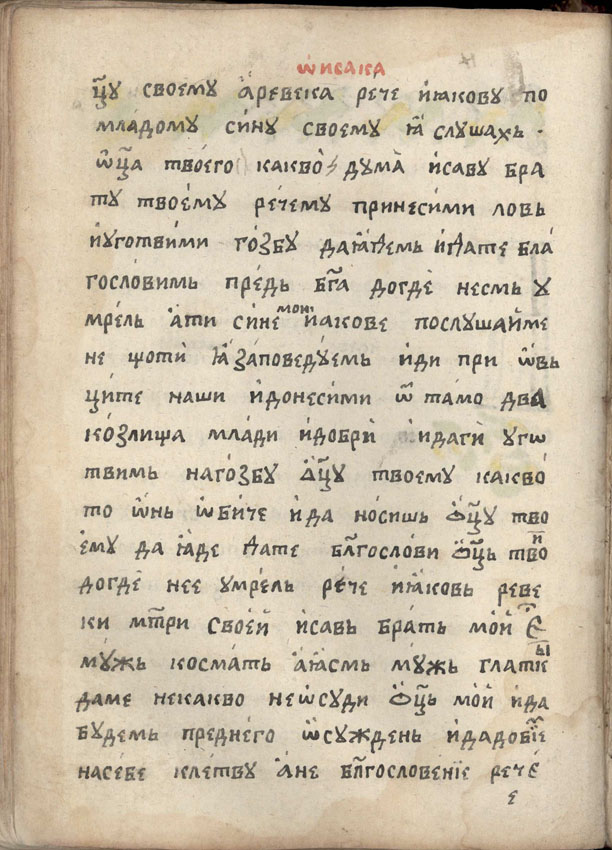 ѡ҆исака
ѡц҃у своему а҆ревека рече и҆ꙗкову по
младому си́ну своему ꙗ҆ слушахь ·
ѿц҃а твоего какво̀ дума̀ исаву бра
ту твоему речему принесими ловь
иуготвими го́збу даꙗ҆демь и҆дате бла́
гословимь пре́дь бг҃а догде̏ несмь у
мрель а҆ти си́не мои и҆акове послушаи҆ме
не щоти̏ ꙗ҆ заповедуемь и҆ди при ѡ҆вь
ците наши и҆донесими ѿ тамо два
козлища млади и҆добри̏ и҆даги̏ угѡ
твимь нагозбу ѻ҆ц҃у твоему какво́
то ѡ҆нь ѡ҆би́че и҆да но́сишь ѻ҆ц҃у тво
е́му да ꙗ҆де дате блг҃ослови ѻ҆ц҃ь твои
догде̏ нее умре́ль рече и҆ꙗковь реве
ки мт҃ри своеи̏ и҆савь брать мои̏ є҆с҃
мужь косма́ть а҆ꙗсмь му́жь глаткы
даме некакво неѡ҆суди ѻ҆ц҃ь мои̏ и҆да
будемь преднего ѡ҆сужде́нь и҆дадобїе
насебе кле́тву а҆не блг҃ословенїе рече́
е